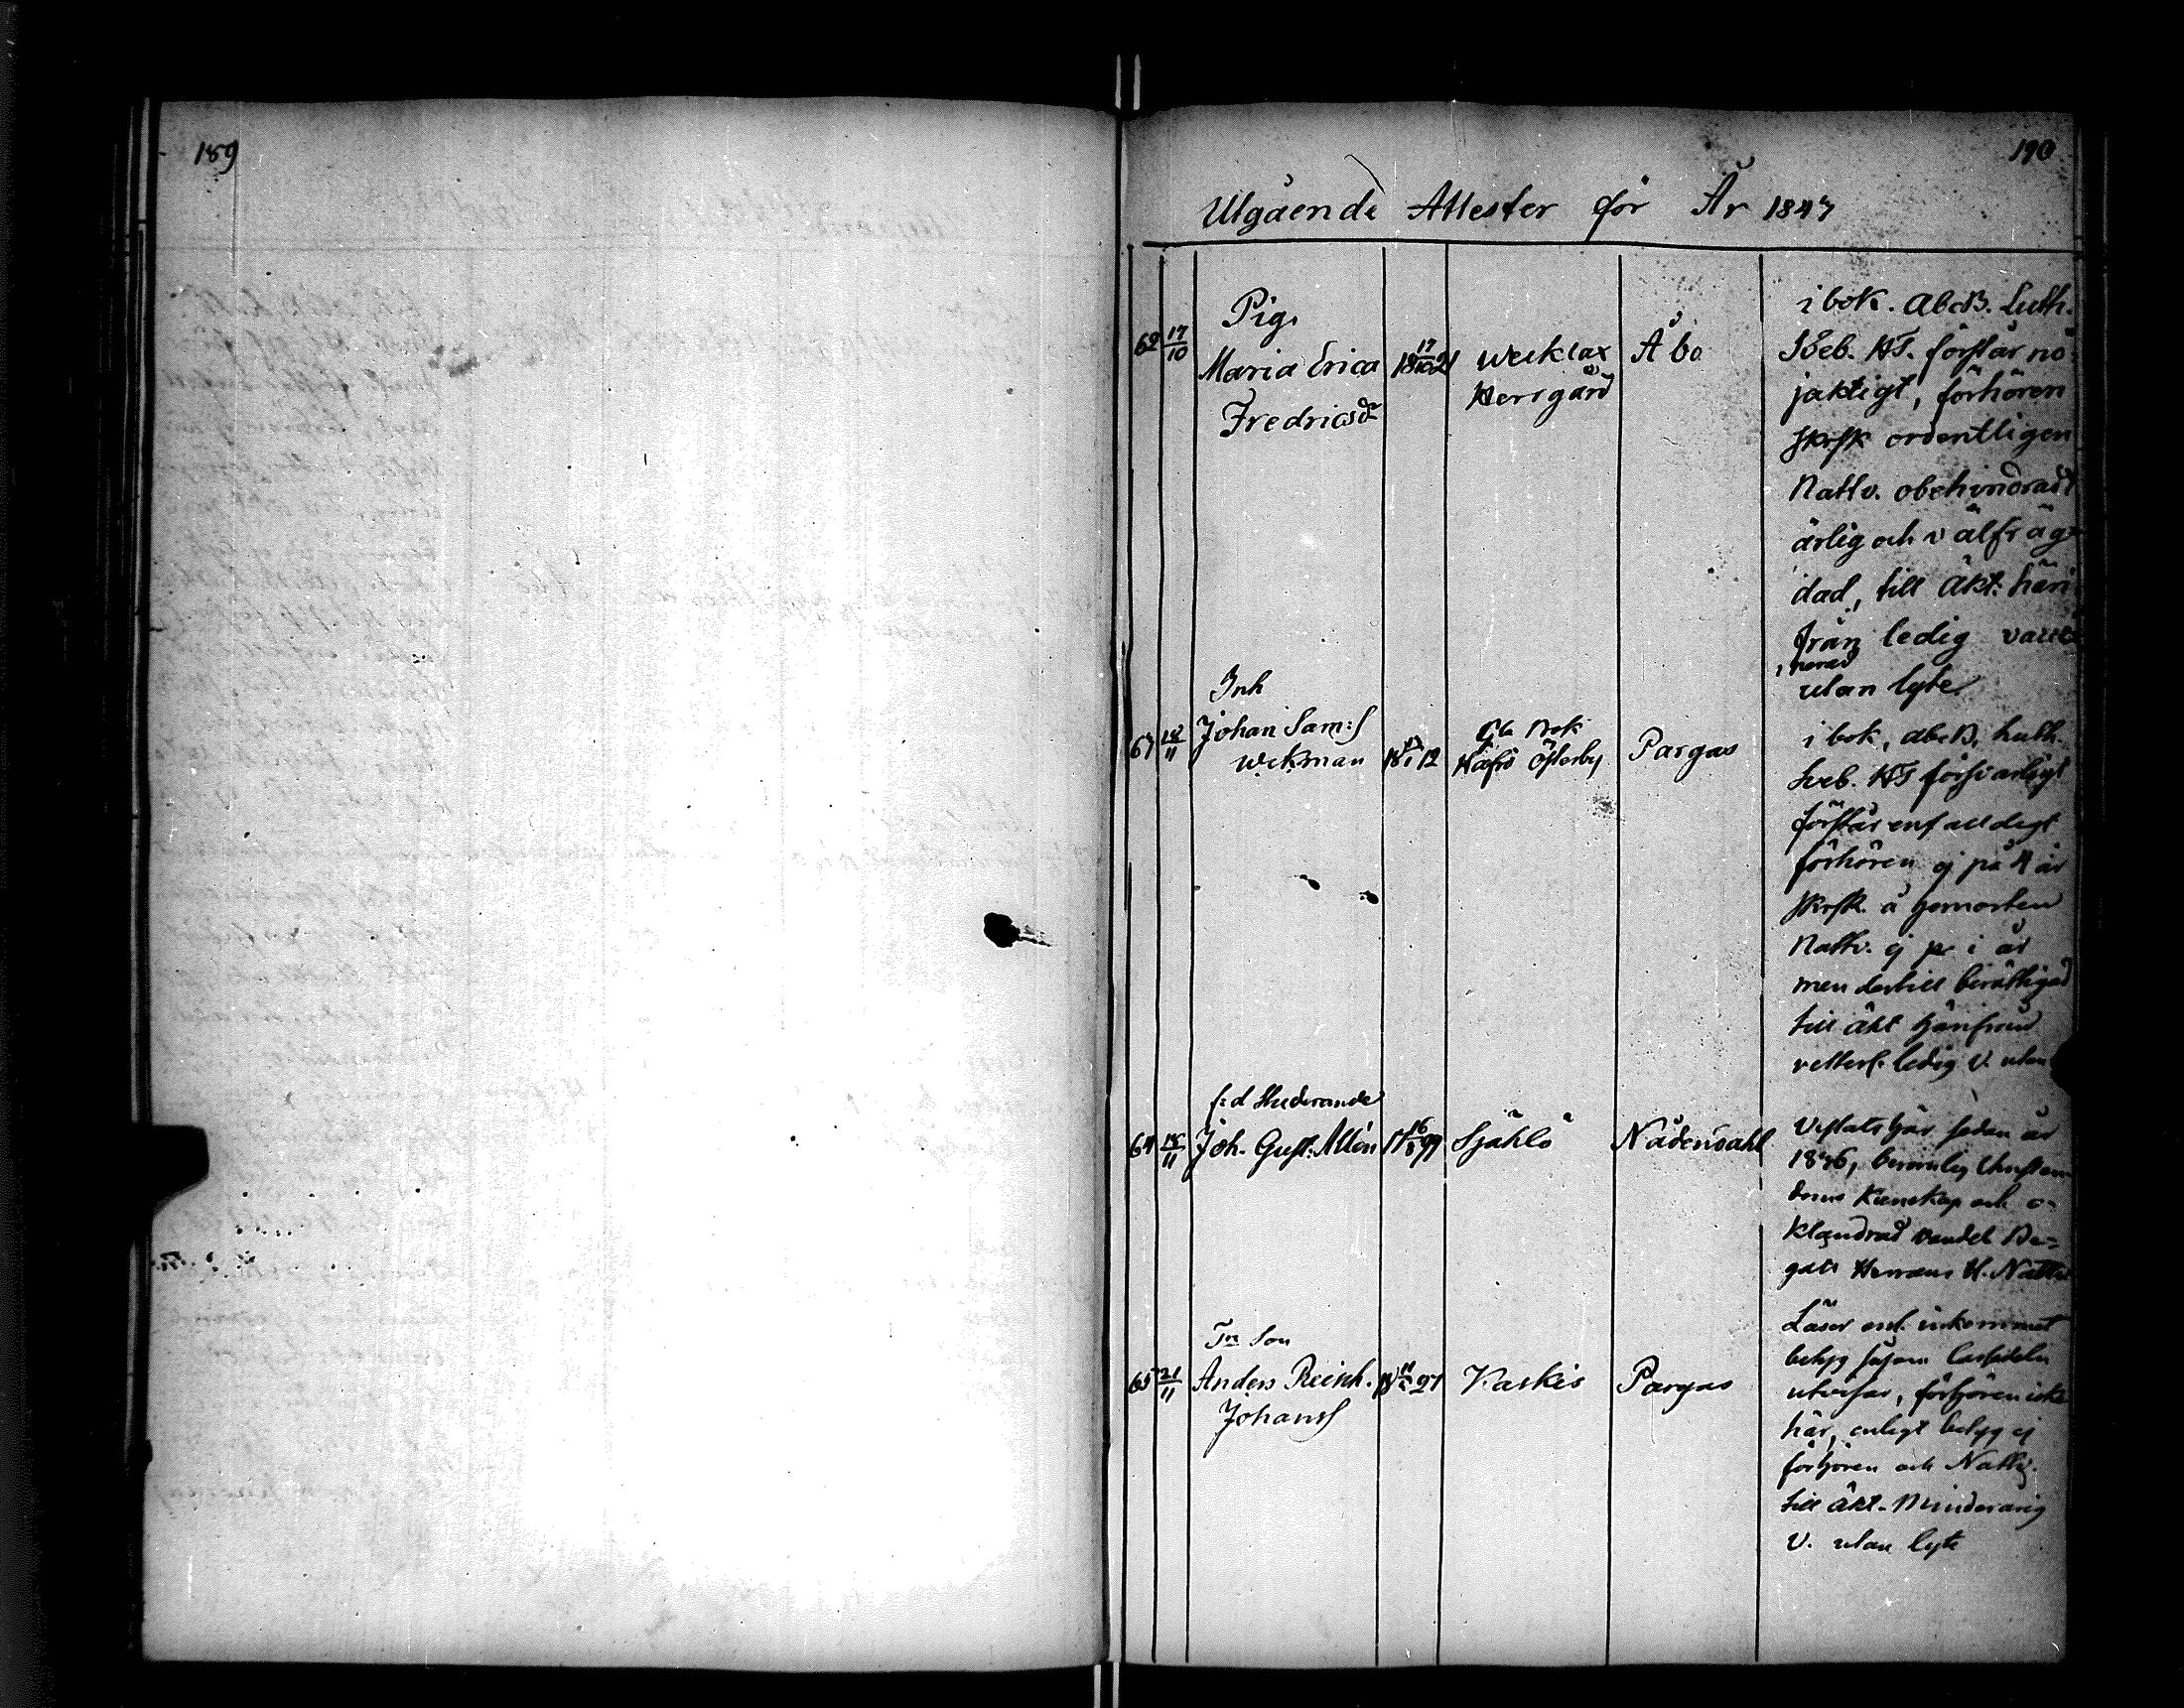 189
190
Utgående Attester för År 1847
62 17/10 Pig. Maria Erica Fredricsdr 18 17/10 21 Werklax Herrgård Åbo
i bok. AbcB. Luth.
Sveb. HT. förstår nö-
jaktigt, förhören
skrsk ordentligen
Nattv. obehindradt
ärlig och välfräg-
dad, till äkt. häri-
från ledig vacci-
nerad
utan lyte
63 18/11 Inh Johan Sam:s Wekman 18 12 Österby Pargas
i bok, abcB, Luth.
Sveb. HT försvarligt
förstår enfaldigt
förhören ej på 4 år
skrsk. å hemorten
Nattv. ej i år
men dertill berättigad
till äkt härifrån
vetterl. ledig v. utan
64 18/11 f:d Studerande Joh. Gust: Allén 17 16/8 99 Själö Nådendahl
Vistats här sedan år
1846, Christen-
doms Kunskap och o-
klandrad vandel Be-
gått Herrans H. Nattv.
65 21/11 Tr Son Anders Reinh. Johanss 18 27 Karkis Pargas
Läser enl. inkommet
betyg såsom
utvisar, förhören icke
här, enligt betyg ej
förhören och Nattv.
till äkt. Minderårig
V. utan lyte